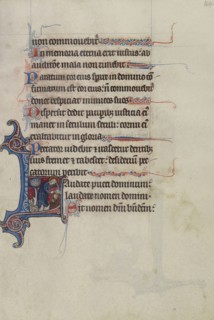 non commouebit᷑
In memoria eterna erit iustus: ab
auditione mala non timebit
Paratum cor eius sperare in domino co᷑
firmatum est cor eius: n̄ commouebit᷑
donec despiciat inimicos suos
Dispersit dedit pauperibus iusticia ei᷒
manet in seculum seculi: cornu ei᷒
exaltabitur in gloria
Peccator uidebit ⁊ irascetur dentib᷒
suis fremet ⁊ tabescet: desiderium pec
catorum peribit
Laudate pueri dominum:
laudate nomen domini
Sit nomen dn̄i bn̄dcm̄: